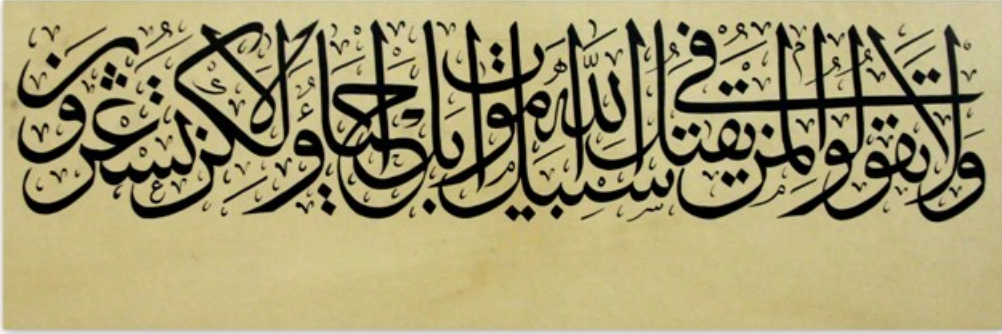 ولا تقولوا لمن يقتل في سبيل الله أموات بل أحياء ولكن لا تشعرون